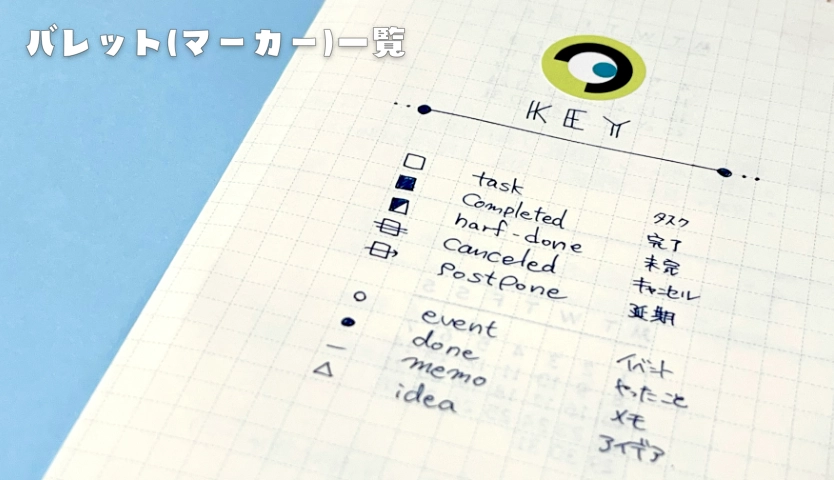 バレット(マーカー)一覧
KEY
task タスク
Completed 完了
harf-done 未完
canceled キャンセル
Postpone 延期
event イベント
done やったこと
memo メモ
idea アイデア